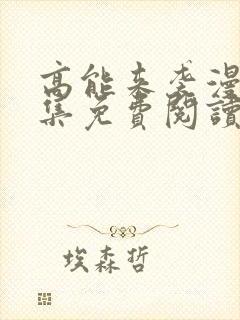 高能来袭漫
集免費閱讀
埃森哲